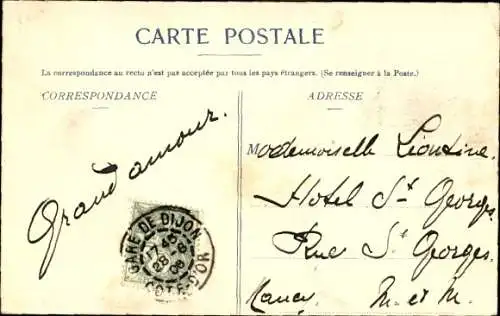 CARTE POSTALE
La correspondance au recto n'est pas acceptée par tous les pays étrangers. (Se renseigner à la Poste.)
CORRESPONDANCE
ADRESSE
Grand amour.
Mademoiselle Léontine.
Hotel St Georges
Rue St Georges.
Nancy M. et M.
GARE DE DIJON
17 45
28
08
COTE-D'OR